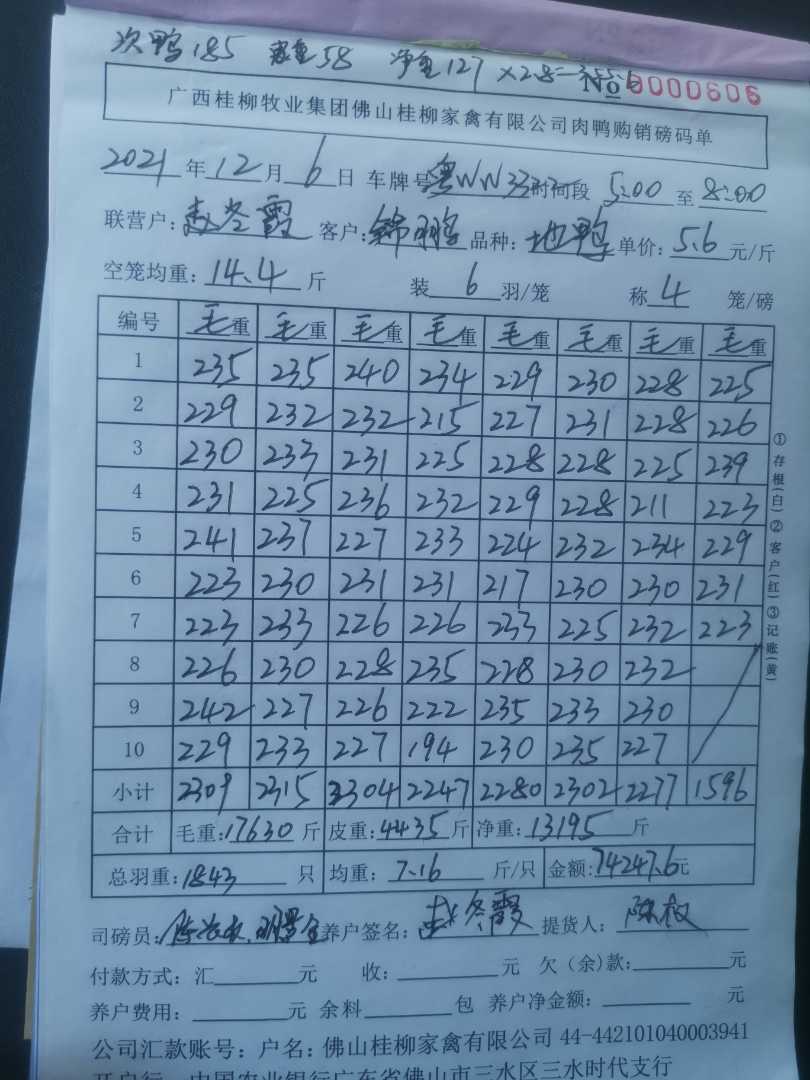 次鸭185 净重127×2.8=355.6
58
No 0000606
广西桂柳牧业集团佛山桂柳家禽有限公司肉鸭购销磅码单
2021年12月6日 车牌号粤WN33 时间段5:00至8:00
联营户:赵冬霞 客户:锦鹏 品种:地鸭 单价:5.6元/斤
空笼均重:14.4斤 装6羽/笼 称4笼/磅
编号 毛重 毛重 毛重 毛重 毛重 毛重 毛重 毛重
1 235 235 240 234 229 230 228 225
2 229 232 232 215 227 231 228 226
3 230 233 231 225 228 228 225 239
4 231 225 236 232 229 228 211 223
5 241 237 227 233 224 232 234 229
6 223 230 231 231 217 230 230 231
7 223 233 226 226 233 225 232 223
8 226 230 228 235 228 230 232
9 242 227 226 222 235 233 230
10 229 233 227 194 230 235 227
小计 2309 2315 2304 2247 2280 2302 2277 1596
合计 毛重:17630斤 皮重:4435斤 净重:13195斤
总羽重:1843只 均重:7.16斤/只 金额:74247.6元
①存根(白)②客户(红)③记账(黄)
司磅员: 养户签名:赵冬霞 提货人:陈权
付款方式:汇元 收:元 欠(余)款:元
养户费用:元 余料包 养户净金额:元
公司汇款账号:户名:佛山桂柳家禽有限公司 44-442101040003941
开户行:中国农业银行广东省佛山市三水区三水时代支行